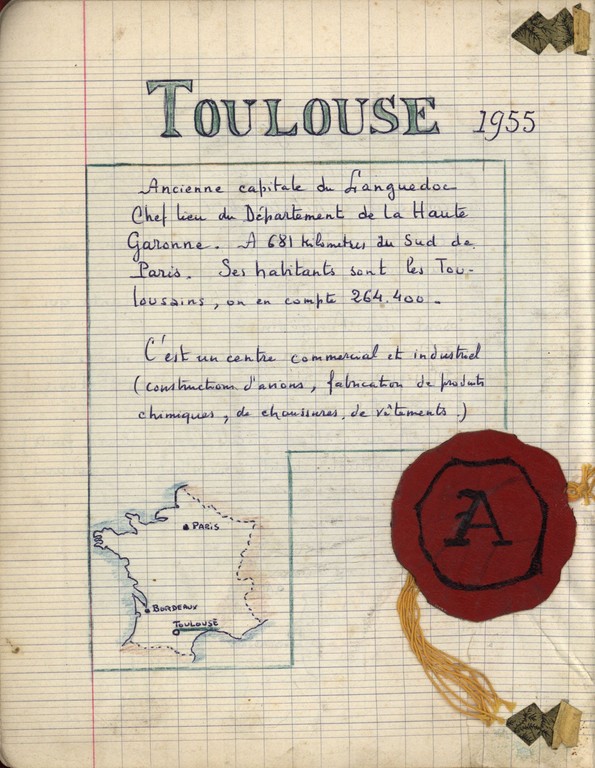 TOULOUSE 1955
Ancienne capitale du Languedoc
Chef lieu du Département de la Haute
Garonne. A 681 kilometres du Sud de
Paris. Ses habitants sont les Tou-
lousains, on en compte 264.400.
C'est un centre commercial et industriel
(constructions d'avions, fabrication de produits
chimiques, de chaussures, de vêtements.)
A
PARIS
BORDEAUX
TOULOUSE